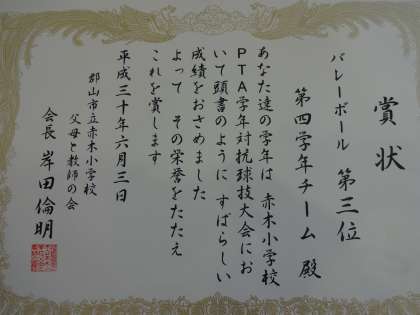 賞状
バレーボール 第三位
第四学年チーム 殿
あなた達の学年は 赤木小学校
PTA学年対抗球技大会にお
いて頭書のように すばらしい
成績をおさめました
よって その栄誉をたたえ
これを賞します
平成三十年六月三日
郡山市立赤木小学校
父母と教師の会
会長 岸田倫明